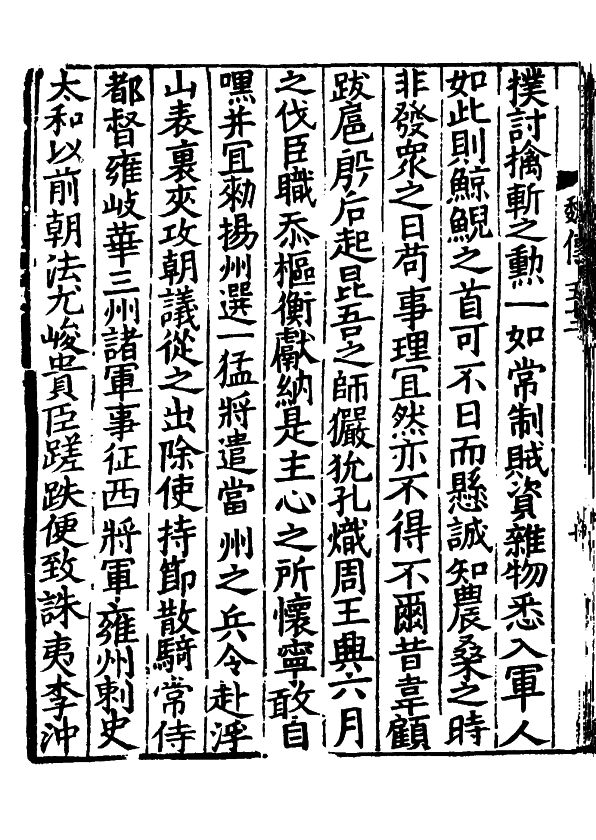 撲討擒斬之勳一如常制賊資雜物悉入軍人
如此則鯨鯢之首可不日而懸誠知農桑之時
非發衆之日苟事理冝然亦不得不爾昔韋顧
跋扈殷后起昆吾之師玁狁孔熾周王興六月
之伐臣職忝樞衡獻納是主心之所懷寧敢自
嘿并冝勑揚州選一猛將遣當州之兵令赴浮
山表裏夾攻朝議從之出除使持節散騎常侍
都督雍岐華三州諸軍事征西將軍雍州刺史
太和以前朝法尤峻貴臣蹉跌便致誅夷李沖